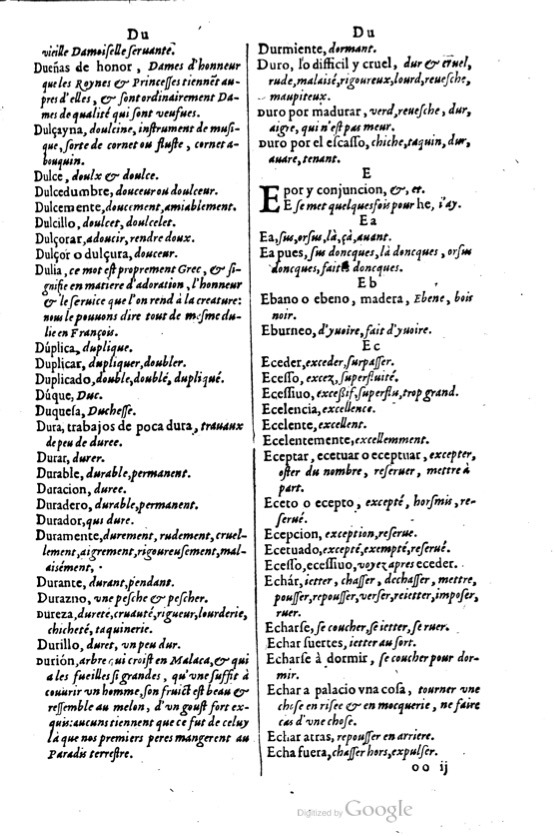 Du
vieille Damoiselle seruante.
Dueñas de honor, Dames d'honneur
que les Roynes & Princesses tiennẽt au-
pres d'elles, & sont ordinairement Da-
mes de qualité qui sont veufues.
Dulçayna, doulcine, instrument de musi-
que, sorte de cornet ou fluste, cornet a-
bouquin.
Dulce, doulx & doulce.
Dulcedumbre, douceur ou doulceur.
Dulcemente, doucement, amiablement.
Dulcillo, doulcet, doulcelet.
Dulçorar, adoucir, rendre doux.
Dulçor o dulçura, douceur.
Dulia, ce mot est proprement Grec, & si-
gnifie en matiere d'adoration, l'honneur
& le seruice que l'on rend à la creature:
nous le pouuons dire tout de mesme du-
lie en François.
Dúplica, duplique.
Duplicar, dupliquer, doubler.
Duplicado, double, doublé, dupliqué.
Dúque, Duc.
Duquesa, Duchesse.
Dura, trabajos de poca dura, trauaux
de peu de duree.
Durar, durer.
Durable, durable, permanent.
Duracion, duree.
Duradero, durable, permanent.
Durador, qui dure.
Duramente, durement, rudement, cruel-
lement, aigrement, rigoureusement, mal-
aisément,
Durante, durant, pendant.
Durazno, vne pesche & pescher.
Dureza, dureté, cruauté, rigueur, lourderie,
chicheté, taquinerie.
Durillo, duret, vn peu dur.
Durión, arbre qui croist en Malaca, & qui
a les fueilles si grandes, qu'vne suffit à
couurir vn homme, son fruict est beau &
ressemble au melon, d'vn goust fort ex-
quis: aucuns tiennent que ce fut de celuy
là que nos premiers peres mangerent au
Paradis terrestre.
Du
Durmiente, dormant.
Duro, lo difficil y cruel, dur & cruel,
rude, malaisé, rigoureux, lourd, reuesche,
maupiteux.
Duro por madurar, verd, reuesche, dur,
aigre, qui n'est pas meur.
Duro por el escasso, chiche, taquin, dur,
auare, tenant.
E
E por y conjuncion, &, et.
E se met quelquesfois pour he, i'ay.
Ea
Ea, sus, orsus, là, çà, auant.
Ea pues, sus doncques, là doncques, orsus
doncques, fait doncques.
Eb
Ebano o ebeno, madera, Ebene, bois
noir.
Eburneo, d'yuoire, fait d'yuoire.
Ec
Eceder, exceder, surpasser.
Ecesso, excez, superfluité.
Ecessiuo, excessif, superflu, trop grand.
Ecelencia, excellence.
Ecelente, excellent.
Ecelentemente, excellemment.
Eceptar, ecetuar o eceptuar, excepter,
oster du nombre, reseruer, mettre à
part.
Eceto o ecepto, excepté, horsmis, re-
serué.
Ecepcion, exception, reserue.
Ecetuado, excepté, exempté, reserué.
Ecesso, ecessiuo, voyez apres eceder.
Echár, ietter, chasser, dechasser, mettre,
pousser, repousser, verser, reietter, imposer,
ruer.
Echarse, se coucher, se ietter, se ruer.
Echar suertes, ietter au sort.
Echarse à dormir, se coucher pour dor-
mir.
Echar a palacio vna cosa, tourner vne
chose en risee & en mocquerie, ne faire
cas d'vne chose.
Echar atras, repousser en arriere.
Echa fuera, chasser hors, expulser.
oo ij
Digitized by Google